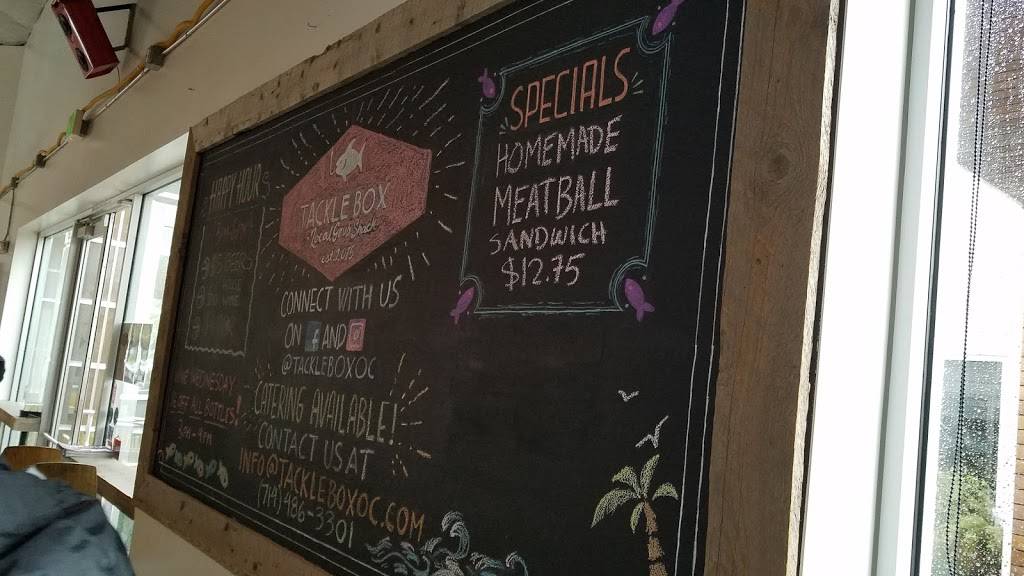 HAPPY HOUR
TACKLE BOX
Local Grub Shack
est. 2015
CONNECT WITH US
ON f AND
@TACKLEBOXOC
CATERING AVAILABLE!
CONTACT US AT
INFO@TACKLEBOXOC.COM
(714) 486-3301
WEDNESDAY
OFF ALL BOTTLES
SPECIALS
HOMEMADE
MEATBALL
SANDWICH
$12.75